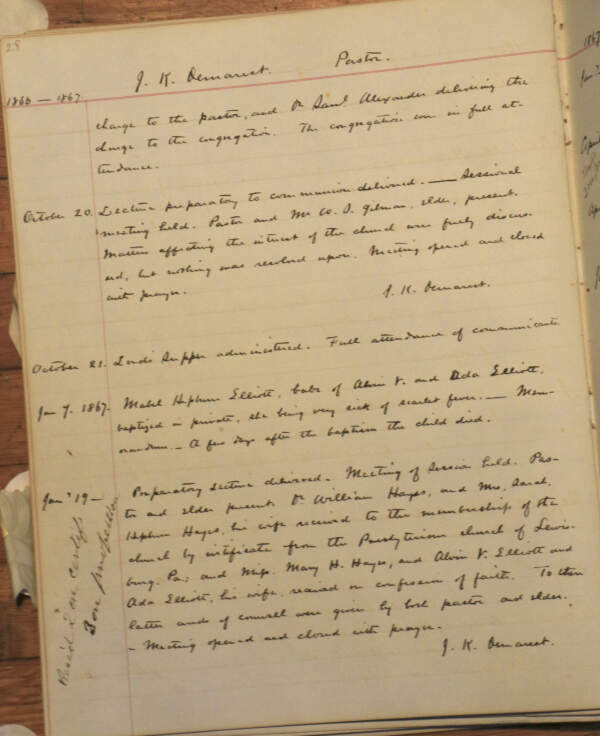 28
1866 — 1867
J. K. Demarest. Pastor.
charge to the pastor, and Dr Saml Alexander delivering the
charge to the congregation. The congregation was in full at-
tendance.
October 20. Lecture preparatory to communion delivered. — Sessional
meeting held. Pastor and Mr W. S. Gilman, elder, present.
Matters affecting the interest of the church were freely discus-
sed, but nothing was resolved upon. Meeting opened and closed
with prayer.
J. K. Demarest.
October 21. Lord's Supper administered. Full attendance of communicants
Jan 7. 1867. Mabel Hepburn Elliott, babe of Alvin V. and Ada Elliott,
baptized in private, she being very sick of scarlet fever. — Mem-
orandum. — A few days after the baptism the child died.
Jany 19 — Preparatory Lecture delivered. Meeting of Session held. Pas-
tor and elder present. Dr William Hayes, and Mrs. Sarah
Hepburn Hayes, his wife received to the membership of the
church by certificate from the Presbyterian church of Lewis-
burg, Pa; and Miss Mary H. Hayes, and Alvin V. Elliott and
Ada Elliott, his wife, received on confession of faith. To these
latter words of counsel were given by both pastor and elder.
— Meeting opened and closed with prayer.
J. K. Demarest.
Rec'd 2 on certifs
3 on profession
1867
Jany
April